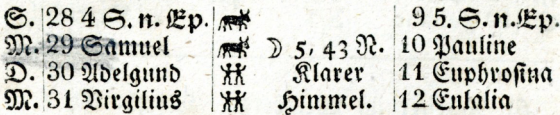 S. 28 4 S. n. Ep. 9 5. S. n. Ep.
M. 29 Samuel ☽ 5, 43 N. 10 Pauline
D. 30 Adelgund Klarer 11 Euphrosina
M. 31 Virgilius Himmel. 12 Eulalia